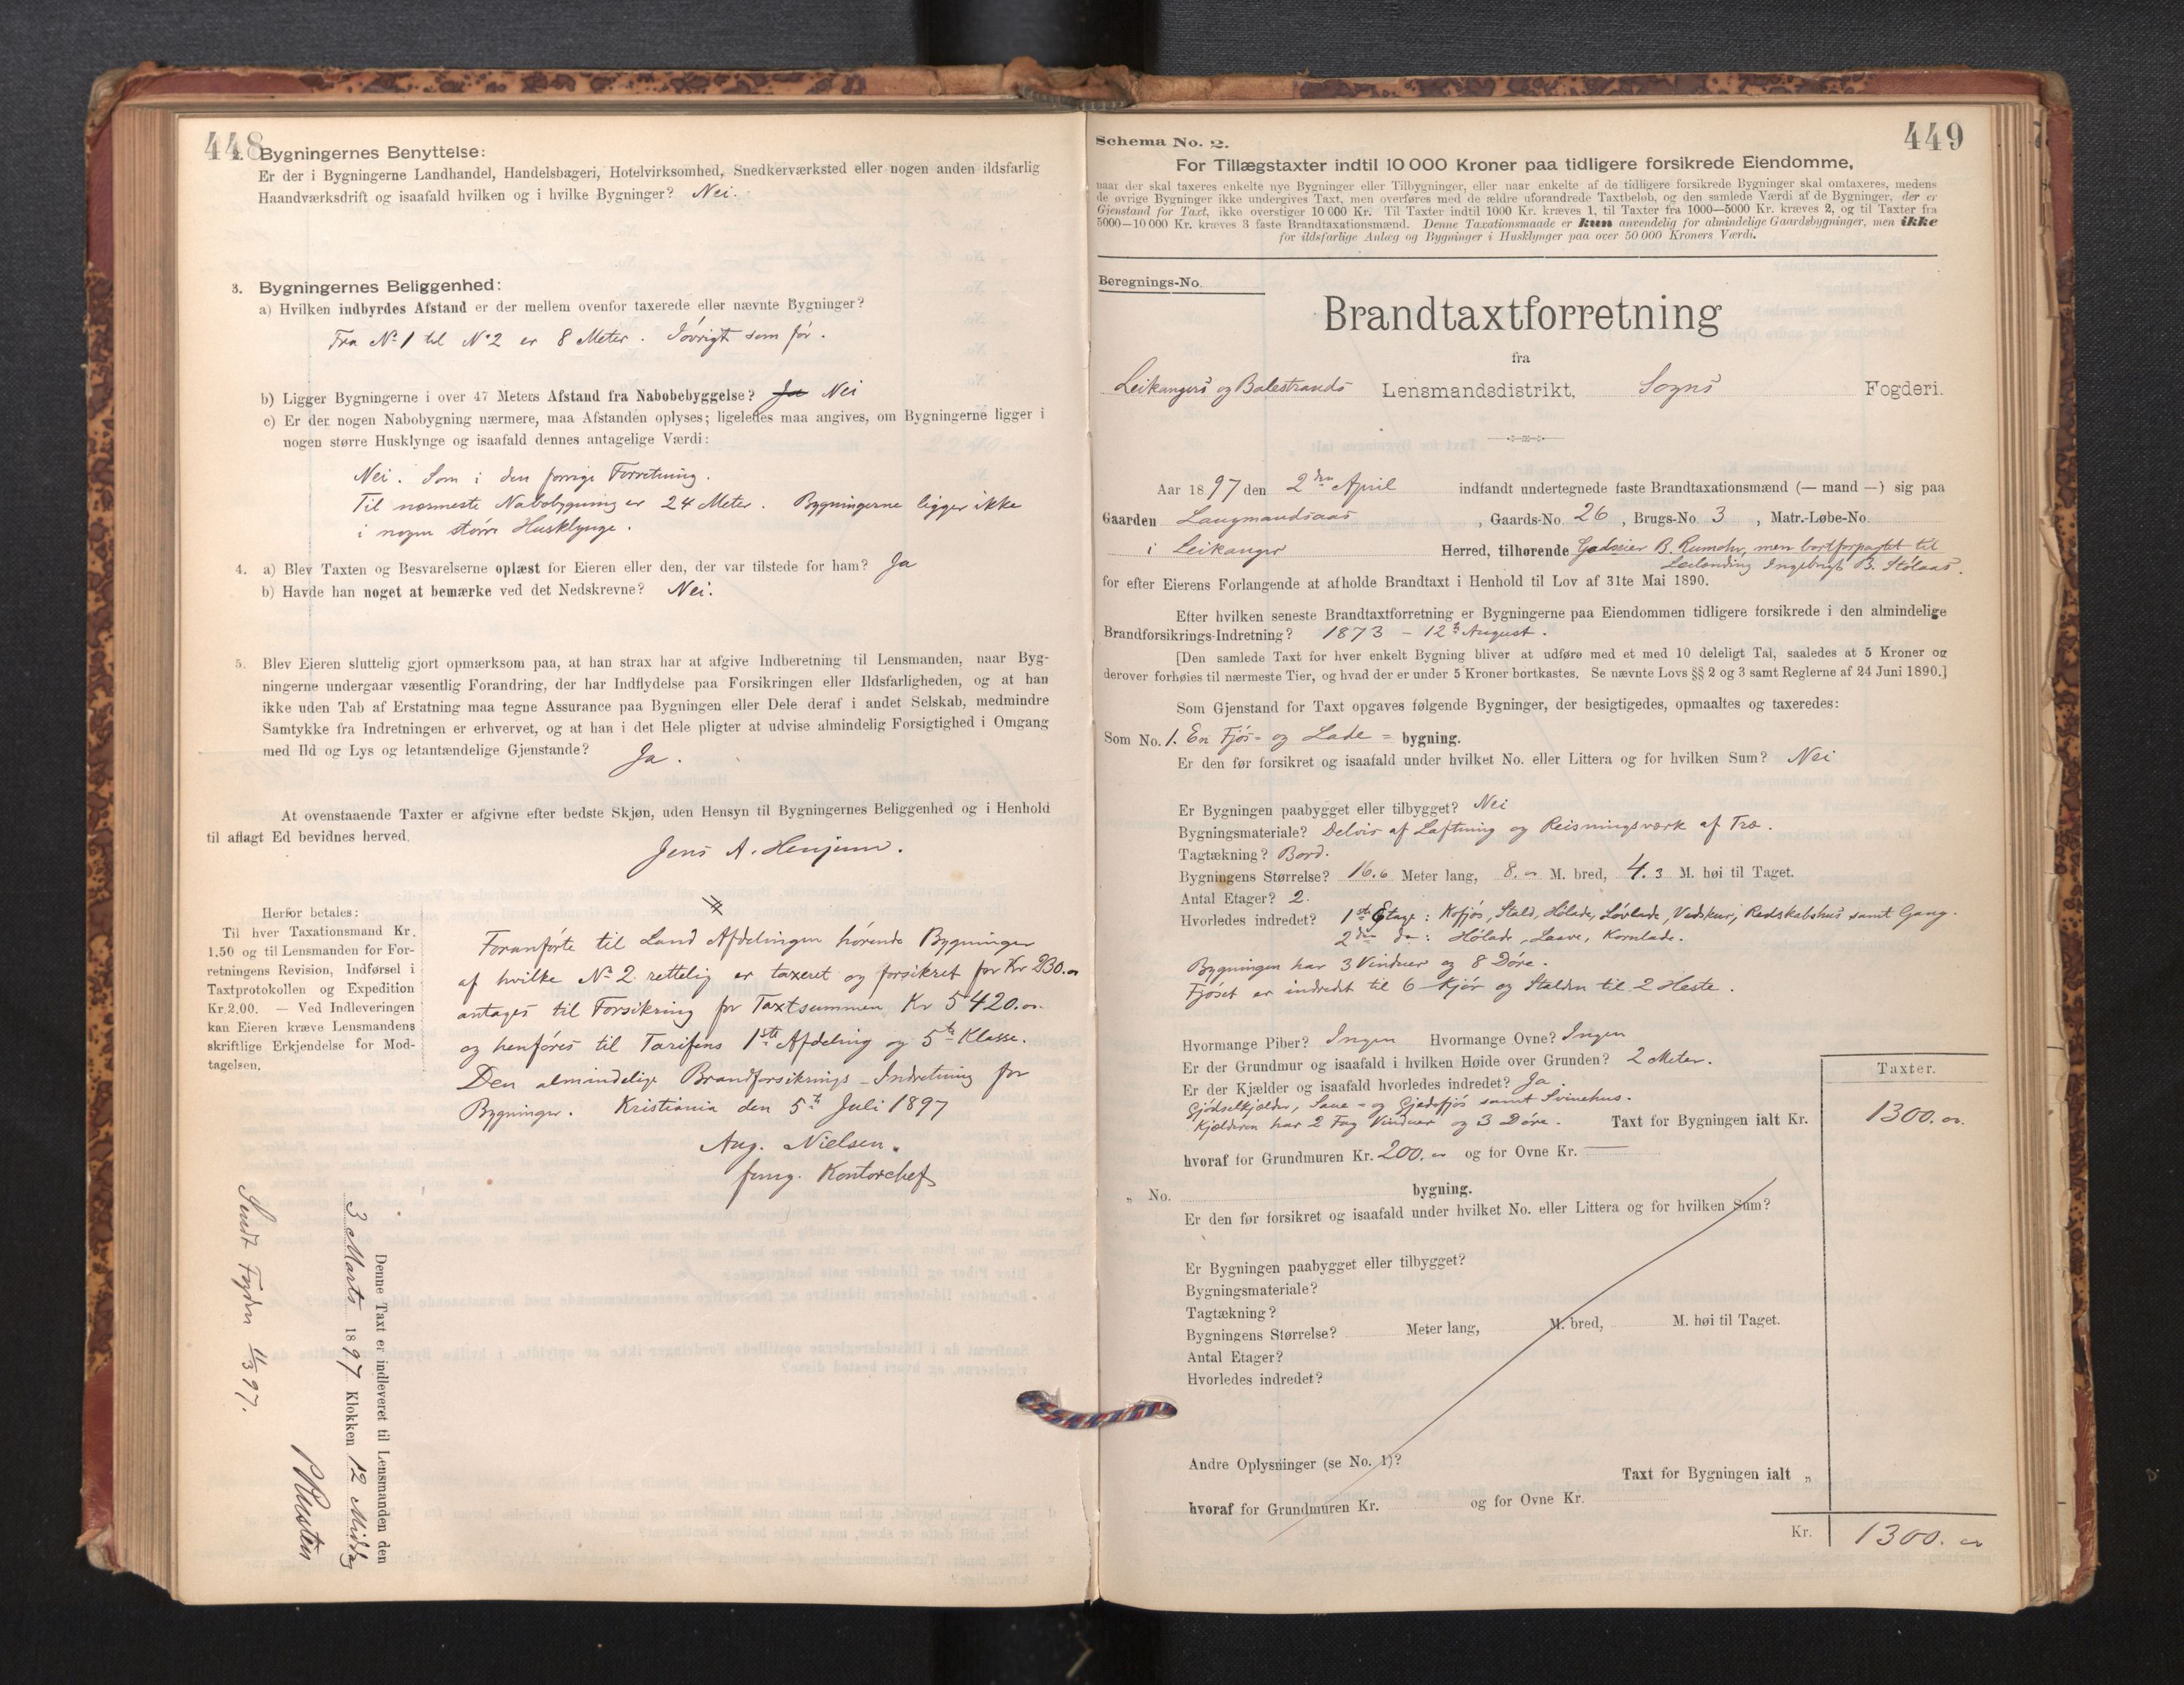 448
2. Bygningernes Benyttelse:
Er der i Bygningerne Landhandel, Handelsbageri, Hotelvirksomhed, Snedkerværksted eller nogen anden ildsfarlig
Haandværksdrift og isaafald hvilken og i hvilke Bygninger? Nei.
3. Bygningernes Beliggenhed:
a) Hvilken indbyrdes Afstand er der mellem ovenfor taxerede eller nævnte Bygninger?
Fra No 1 til No 2 er 8 Meter. Iøvrigt som før.
b) Ligger Bygningerne i over 47 Meters Afstand fra Nabobebyggelse? Ja Nei
c) Er der nogen Nabobygning nærmere, maa Afstanden oplyses; ligeledes maa angives, om Bygningerne ligger i
nogen større Husklynge og isaafald dennes antagelige Værdi:
Nei. Som i den forrige Forretning.
Til nærmeste Nabobygning er 24 Meter. Bygningerne ligger ikke
i nogen større Husklynge.
4. a) Blev Taxten og Besvarelserne oplæst for Eieren eller den, der var tilstede for ham? Ja
b) Havde han noget at bemærke ved det Nedskrevne? Nei.
5. Blev Eieren sluttelig gjort opmærksom paa, at han strax har at afgive Indberetning til Lensmanden, naar Byg-
ningerne undergaar væsentlig Forandring, der har Indflydelse paa Forsikringen eller Ildsfarligheden, og at han
ikke uden Tab af Erstatning maa tegne Assurance paa Bygningen eller Dele deraf i andet Selskab, medmindre
Samtykke fra Indretningen er erhvervet, og at han i det Hele pligter at udvise almindelig Forsigtighed i Omgang
med Ild og Lys og letantændelige Gjenstande? Ja.
At ovenstaaende Taxter er afgivne efter bedste Skjøn, uden Hensyn til Bygningernes Beliggenhed og i Henhold
til aflagt Ed bevidnes herved.
Jens A. Henjum.
Herfor betales:
Til hver Taxationsmand Kr.
1.50 og til Lensmanden for For-
retningens Revision, Indførsel i
Taxtprotokollen og Expedition
Kr. 2.00. — Ved Indleveringen
kan Eieren kræve Lensmandens
skriftlige Erkjendelse for Mod-
tagelsen.
Foranførte til Land Afdelingen hørende Bygninger
af hvilke No 2 rettelig er taxeret og forsikret for Kr 230.00
antages til Forsikring for Taxtsummen Kr 5420.00
og henføres til Tarifens 1ste Afdeling og 5te Klasse.
Den almindelige Brandforsikrings-Indretning for
Bygninger. Kristiania den 5te Juli 1897
Aug. Nielsen.
fung. Kontorchef
Denne Taxt er indleveret til Lensmanden den
3 Marts 1897 Klokken 12 Middag
Sendt Fogden 4/3 97.
449
Schema No. 2.
For Tillægstaxter indtil 10 000 Kroner paa tidligere forsikrede Eiendomme,
naar der skal taxeres enkelte nye Bygninger eller Tilbygninger, eller naar enkelte af de tidligere forsikrede Bygninger skal omtaxeres, medens
de øvrige Bygninger ikke undergives Taxt, men overføres med de ældre uforandrede Taxtbeløb, og den samlede Værdi af de Bygninger, der er
Gjenstand for Taxt, ikke overstiger 10 000 Kr. Til Taxter indtil 1000 Kr. kræves 1, til Taxter fra 1000—5000 Kr. kræves 2, og til Taxter fra
5000—10 000 Kr. kræves 3 faste Brandtaxationsmænd. Denne Taxationsmaade er kun anvendelig for almindelige Gaardsbygninger, men ikke
for ildsfarlige Anlæg og Bygninger i Husklynger paa over 50 000 Kroners Værdi.
Beregnings-No.
Brandtaxtforretning
fra
Leikangers og Balestrands Lensmandsdistrikt, Sogns Fogderi.
Aar 1897 den 2den April indfandt undertegnede faste Brandtaxationsmænd (— mand —) sig paa
Gaarden Langmandsaas, Gaards-No. 26, Brugs-No. 3, Matr.-Løbe-No.
i Leikanger Herred, tilhørende Godseier B. Rumohr, men bortforpagtet til
Leilænding Ingebrigt B. Stølaas.
for efter Eierens Forlangende at afholde Brandtaxt i Henhold til Lov af 31te Mai 1890.
Efter hvilken seneste Brandtaxtforretning er Bygningerne paa Eiendommen tidligere forsikrede i den almindelige
Brandforsikrings-Indretning? 1873 - 12te August.
[Den samlede Taxt for hver enkelt Bygning bliver at udføre med et med 10 deleligt Tal, saaledes at 5 Kroner og
derover forhøies til nærmeste Tier, og hvad der er under 5 Kroner bortkastes. Se nævnte Lovs §§ 2 og 3 samt Reglerne af 24 Juni 1890.]
Som Gjenstand for Taxt opgaves følgende Bygninger, der besigtigedes, opmaaltes og taxeredes:
Som No. 1. En Fjøs- og Lade- bygning.
Er den før forsikret og isaafald under hvilket No. eller Littera og for hvilken Sum? Nei
Er Bygningen paabygget eller tilbygget? Nei
Bygningsmateriale? Delvis af Laftning og Reisningsværk af Træ.
Tagtækning? Bord.
Bygningens Størrelse? 16.6 Meter lang, 8.00 M. bred, 4.3 M. høi til Taget.
Antal Etager? 2.
Hvorledes indredet? 1ste Etage: Kofjøs, Stald, Hølade, Løvlade, Vedskur, Redskabshus samt Gang.
2den do: Hølade, Laave, Kornlade.
Bygningen har 3 Vinduer og 8 Døre.
Fjøset er indredet til 6 Kjør og Stalden til 2 Heste.
Hvormange Piber? Ingen Hvormange Ovne? Ingen
Er der Grundmur og isaafald i hvilken Høide over Grunden? 2 Meter.
Er der Kjælder og isaafald hvorledes indredet? Ja
Gjødselkjælder, Saue- og Gjedefjøs samt Svinehus.
Kjælderen har 2 Fag Vinduer og 3 Døre. Taxt for Bygningen ialt Kr.
Taxter.
1300.00
hvoraf for Grundmuren Kr. 200.00 og for Ovne Kr. —
„ No. bygning.
Er den før forsikret og isaafald under hvilket No. eller Littera og for hvilken Sum?
Er Bygningen paabygget eller tilbygget?
Bygningsmateriale?
Tagtækning?
Bygningens Størrelse? Meter lang, M. bred, M. høi til Taget.
Antal Etager?
Hvorledes indredet?
Andre Oplysninger (se No. 1)?
Taxt for Bygningen ialt „
hvoraf for Grundmuren Kr. og for Ovne Kr.
Kr. 1300.00